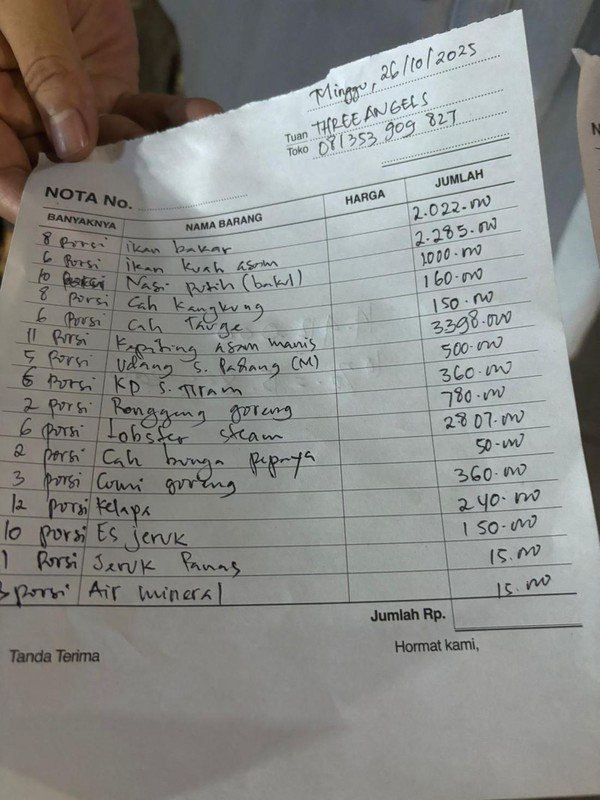 Minggu, 26/10/2025
Tuan THREE ANGELS
Toko 081353 909 827
NOTA No.
BANYAKNYA NAMA BARANG HARGA JUMLAH
8 Porsi ikan bakar 2.022.000
6 Porsi ikan kuah asam 2.285.000
10 Nasi putih (bakul) 1000.000
8 Porsi Cah Kangkung 160.000
6 Porsi Cah Tauge 150.000
11 Porsi Kepiting asam manis 3398.000
5 Porsi Udang S. Padang (M) 500.000
6 Porsi KP S. Tiram 360.000
2 Porsi Ronggeng goreng 780.000
6 Porsi Lobster steam 2807.000
2 Porsi Cah bunga pepaya 50.000
3 Porsi Cumi goreng 360.000
12 Porsi Kelapa 240.000
10 Porsi Es jeruk 150.000
1 Porsi Jeruk Panas 15.000
3 Porsi Air mineral 15.000
Jumlah Rp.
Tanda Terima Hormat kami,